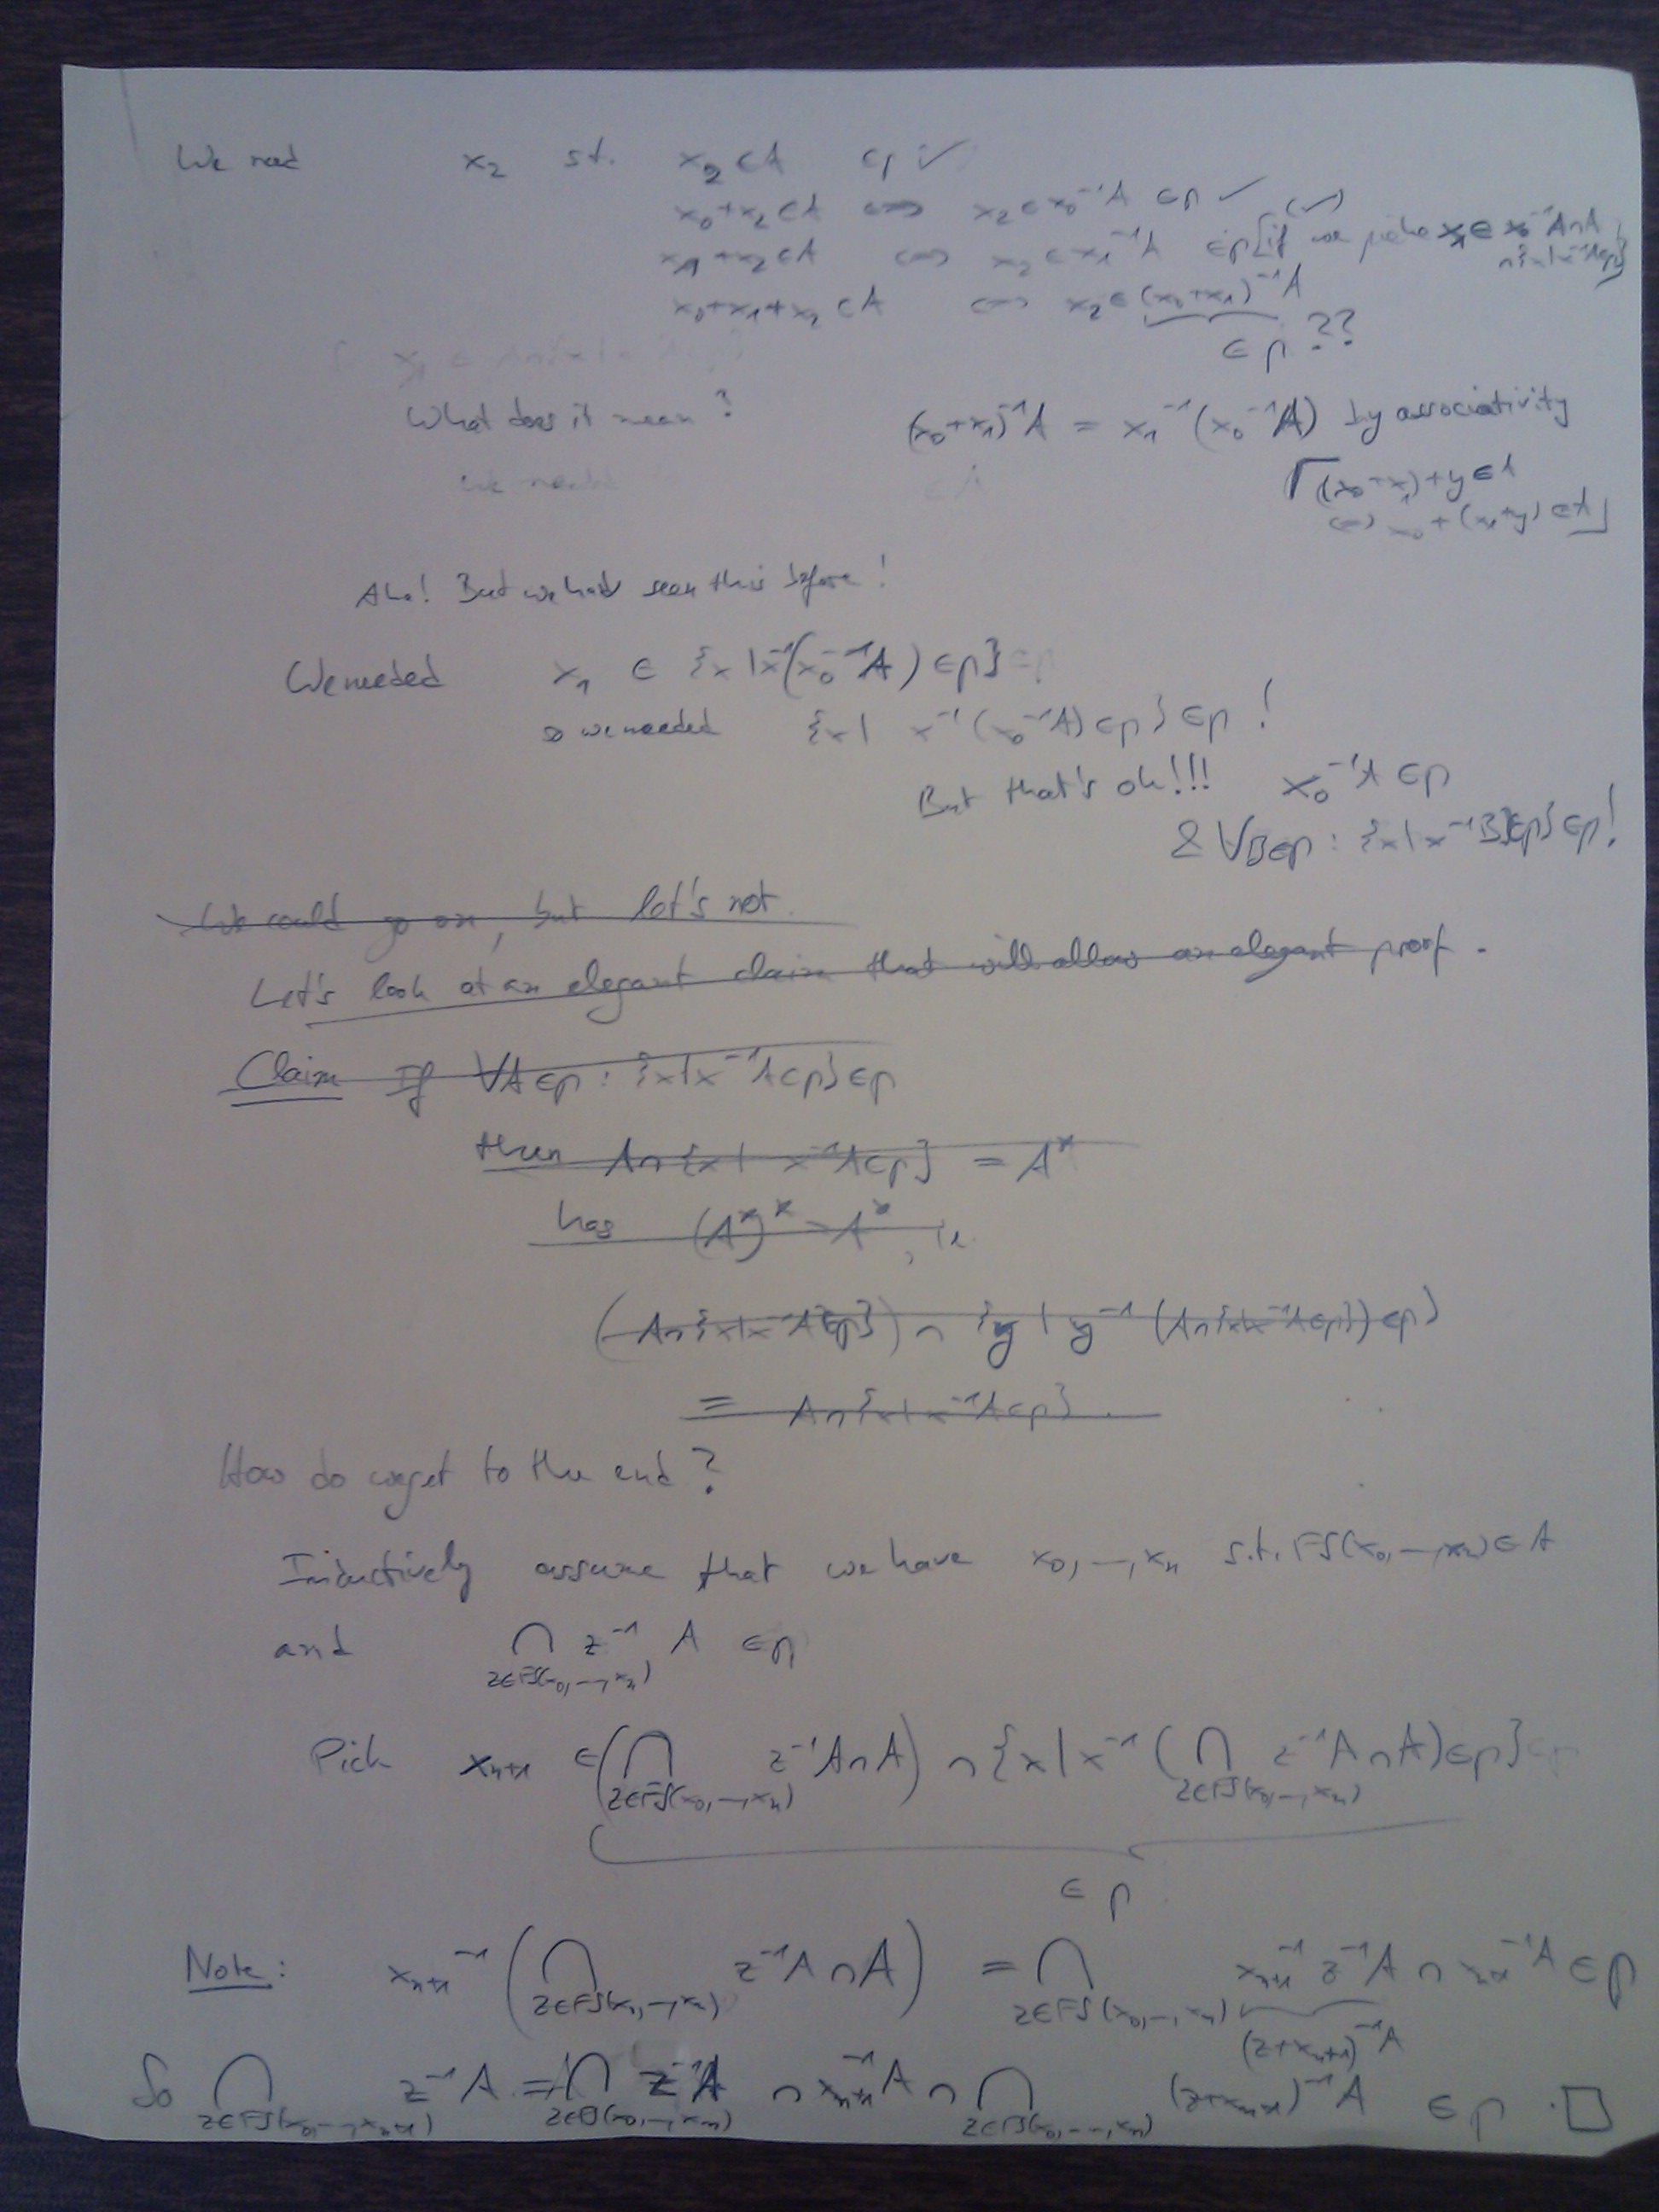 We need x₂ s.t. x₂ ∈ A ∈ p ✓
x₀ + x₂ ∈ A ⟺ x₂ ∈ x₀⁻¹A ∈ p ✓ (✓)
x₁ + x₂ ∈ A ⟺ x₂ ∈ x₁⁻¹A ∈ p [if we picked x₁ ∈ x₀⁻¹A ∩ A
∩ {x | x⁻¹A ∈ p}]
x₀ + x₁ + x₂ ∈ A ⟺ x₂ ∈ (x₀ + x₁)⁻¹A
∈ p ??
What does it mean? (x₀ + x₁)⁻¹A = x₁⁻¹(x₀⁻¹A) by associativity
⌈(x₀ + x₁) + y ∈ A
⟺ x₀ + (x₁ + y) ∈ A⌋
Aha! But we had seen this before!
We needed x₁ ∈ {x | x⁻¹(x₀⁻¹A) ∈ p}
so we needed {x | x⁻¹(x₀⁻¹A) ∈ p} ∈ p !
But that's ok!!! x₀⁻¹A ∈ p
& ∀B ∈ p : {x | x⁻¹B ∈ p} ∈ p !
We could go on, but let's not.
Let's look at an elegant claim that will allow an elegant proof.
Claim If ∀A ∈ p : {x | x⁻¹A ∈ p} ∈ p
then A ∩ {x | x⁻¹A ∈ p} = A*
has (A*)* = A*, i.e.
(A ∩ {x | x⁻¹A ∈ p}) ∩ {y | y⁻¹(A ∩ {x | x⁻¹A ∈ p}) ∈ p}
= A ∩ {x | x⁻¹A ∈ p}.
How do we get to the end?
Inductively assume that we have x₀, …, xₙ s.t. FS(x₀, …, xₙ) ∈ A
and ⋂ z⁻¹A ∈ p
z ∈ FS(x₀, …, xₙ)
Pick xₙ₊₁ ∈ (⋂ z⁻¹A ∩ A) ∩ {x | x⁻¹(⋂ z⁻¹A ∩ A) ∈ p}
z ∈ FS(x₀, …, xₙ) z ∈ FS(x₀, …, xₙ)
∈ p
Note: xₙ₊₁⁻¹(⋂ z⁻¹A ∩ A) = ⋂ xₙ₊₁⁻¹ z⁻¹A ∩ xₙ₊₁⁻¹A ∈ p
z ∈ FS(x₀, …, xₙ) z ∈ FS(x₀, …, xₙ) (z + xₙ₊₁)⁻¹A
So ⋂ z⁻¹A = ⋂ z⁻¹A ∩ xₙ₊₁⁻¹A ∩ ⋂ (z + xₙ₊₁)⁻¹A ∈ p. □
z ∈ FS(x₀, …, xₙ₊₁) z ∈ FS(x₀, …, xₙ) z ∈ FS(x₀, …, xₙ)